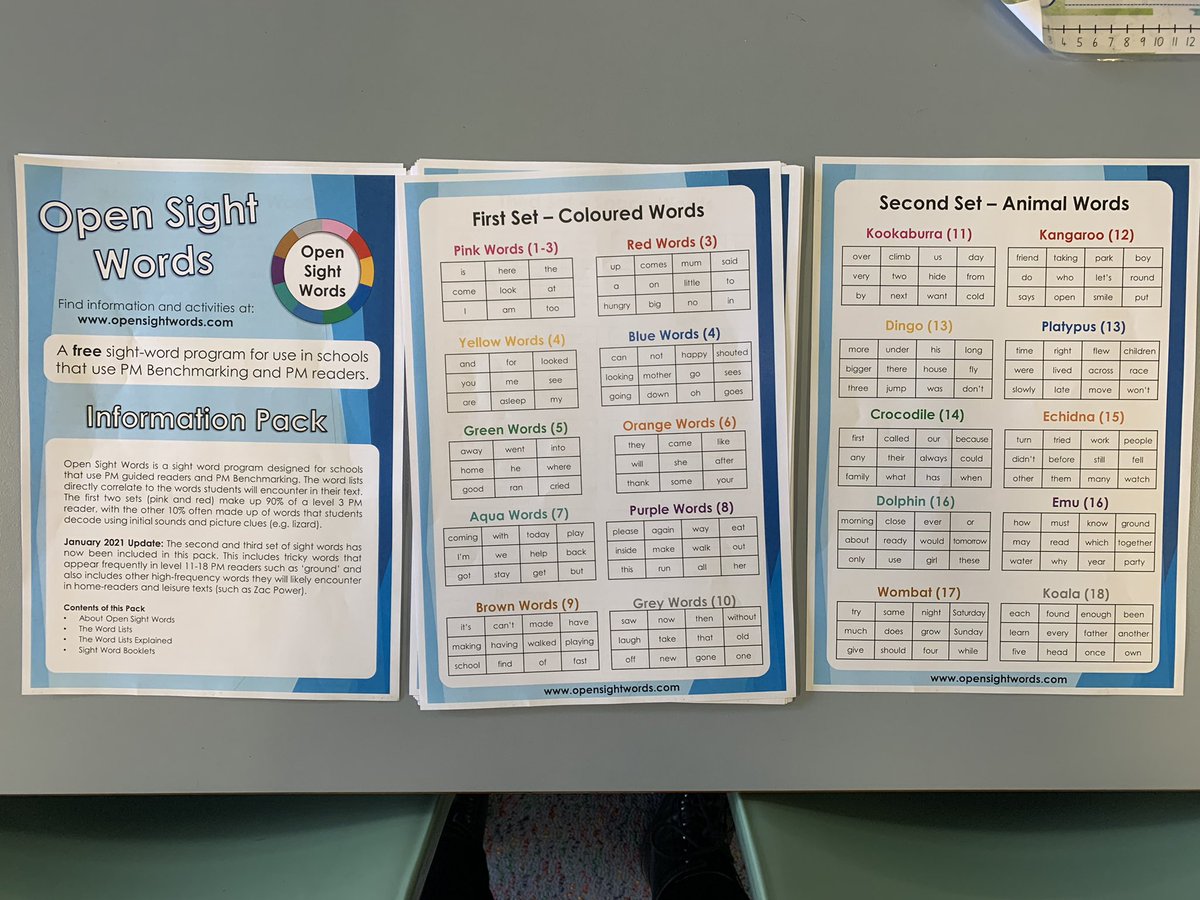 4 5 6 7 8 9 10 11 12
Open Sight
Words
Open
Sight
Words
Find information and activities at:
www.opensightwords.com
A free sight-word program for use in schools
that use PM Benchmarking and PM readers.
Information Pack
Open Sight Words is a sight word program designed for schools
that use PM guided readers and PM Benchmarking. The word lists
directly correlate to the words students will encounter in their text.
The first two sets (pink and red) make up 90% of a level 3 PM
reader, with the other 10% often made up of words that students
decode using initial sounds and picture clues (e.g. lizard).
January 2021 Update: The second and third set of sight words has
now been included in this pack. This includes tricky words that
appear frequently in level 11-18 PM readers such as ‘ground’ and
also includes other high-frequency words they will likely encounter
in home-readers and leisure texts (such as Zac Power).
Contents of this Pack
• About Open Sight Words
• The Word Lists
• The Word Lists Explained
• Sight Word Booklets
First Set – Coloured Words
Pink Words (1-3)
is here the
come look at
I am too
Red Words (3)
up comes mum said
a on little to
hungry big no in
Yellow Words (4)
and for looked
you me see
are asleep my
Blue Words (4)
can not happy shouted
looking mother go sees
going down oh goes
Green Words (5)
away went into
home he where
good ran cried
Orange Words (6)
they came like
will she after
thank some your
Aqua Words (7)
coming with today play
I'm we help back
got stay get but
Purple Words (8)
please again way eat
inside make walk out
this run all her
Brown Words (9)
it's can't made have
making having walked playing
school find of fast
Grey Words (10)
saw now then without
laugh take that old
off new gone one
www.opensightwords.com
Second Set – Animal Words
Kookaburra (11)
over climb us day
very two hide from
by next want cold
Kangaroo (12)
friend taking park boy
do who let's round
says open smile put
Dingo (13)
more under his long
bigger there house fly
three jump was don't
Platypus (13)
time right flew children
were lived across race
slowly late move won't
Crocodile (14)
first called our because
any their always could
family what has when
Echidna (15)
turn tried work people
didn't before still fell
other them many watch
Dolphin (16)
morning close ever or
about ready would tomorrow
only use girl these
Emu (16)
how must know ground
may read which together
water why year party
Wombat (17)
try same night Saturday
much does grow Sunday
give should four while
Koala (18)
each found enough been
learn every father another
five head once own
www.opensightwords.com